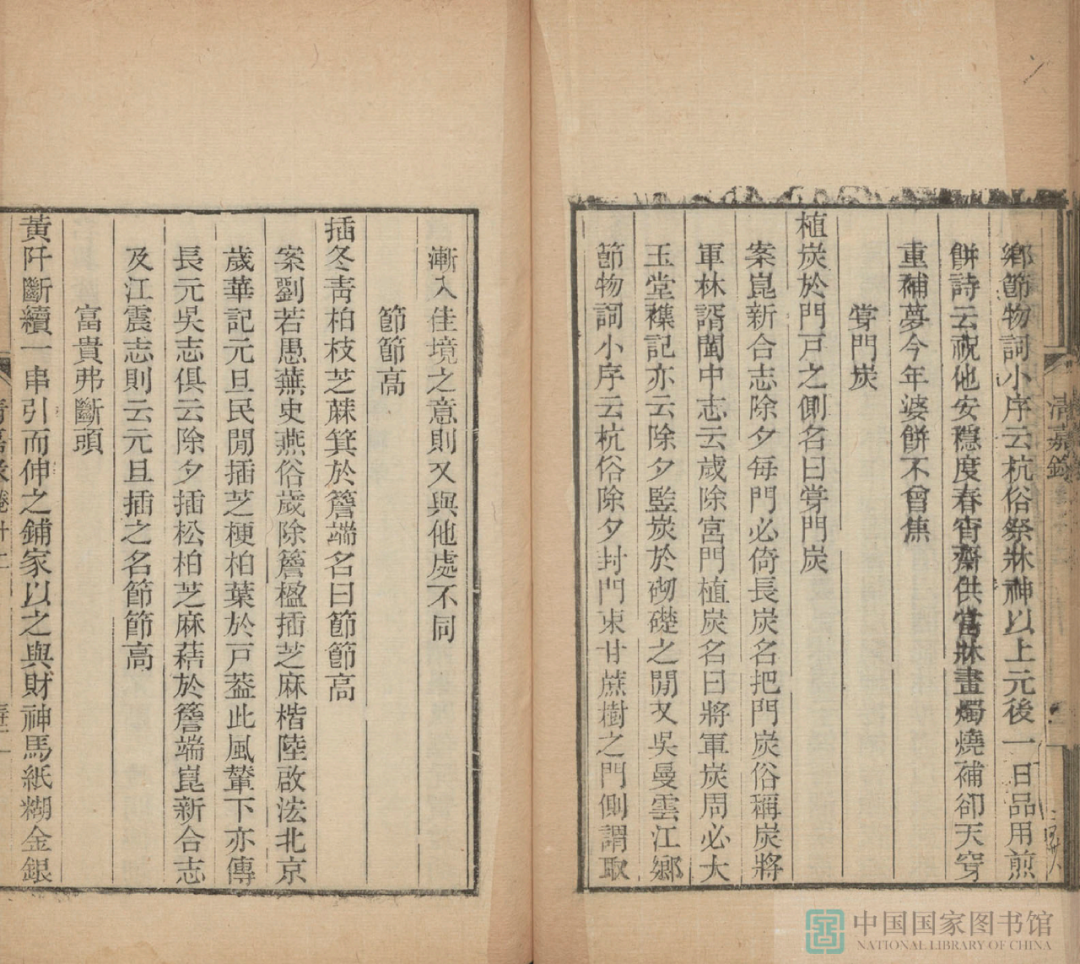 鄉節物詞小序云杭俗祭牀神以上元後一日品用煎
餅詩云祝他安穩度春宵齋供當牀畫燭燒補卻天穿
重補夢今年婆餅不曾焦
掌門炭
植炭於門戶之側名曰掌門炭
案崑新合志除夕每門必倚長炭名把門炭俗稱炭將
軍林諝閩中志云歲除宮門植炭名曰將軍炭周必大
玉堂襍記亦云除夕監炭於砌礎之閒又吳曼雲江鄉
節物詞小序云杭俗除夕封門束甘蔗樹之門側謂取
清嘉錄
漸入佳境之意則又與他處不同
節節高
插冬青柏枝芝蔴箕於簷端名曰節節高
案劉若愚蕪史燕俗歲除簷楹插芝麻楷陸啟浤北京
歲華記元旦民閒插芝梗柏葉於戶葢此風輦下亦傳
長元吳志俱云除夕插松柏芝麻藉於簷端崑新合志
及江震志則云元旦插之名節節高
富貴弗斷頭
黃阡斷續一串引而伸之鋪家以之與財神馬紙糊金銀
中国国家图书馆
NATIONAL LIBRARY OF CHINA